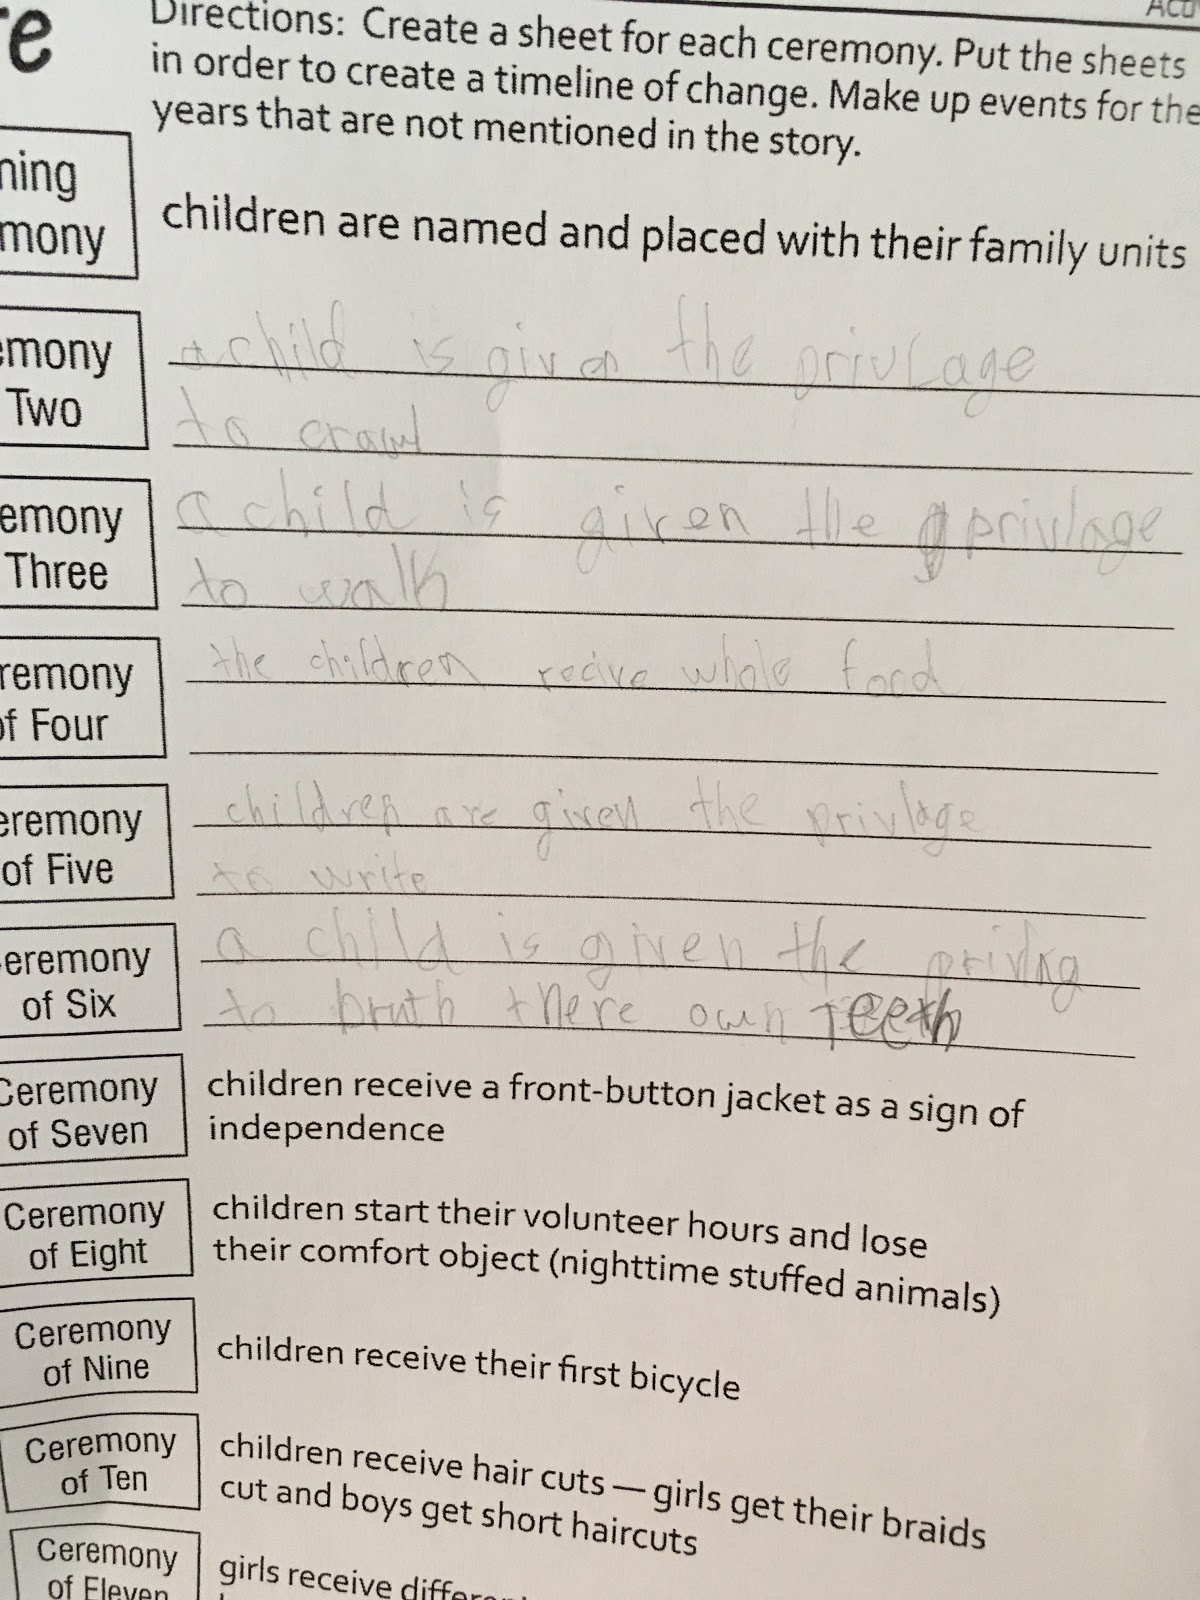 Directions: Create a sheet for each ceremony. Put the sheets
in order to create a timeline of change. Make up events for the
years that are not mentioned in the story.
children are named and placed with their family units
Two
a child is given the privlage
to crawl
Three
a child is given the privlage
to walk
of Four
the children recive whole food
of Five
children are given the privlage
to write
of Six
a child is given the
to there own Teeth
Ceremony
of Seven
children receive a front-button jacket as a sign of
independence
Ceremony
of Eight
children start their volunteer hours and lose
their comfort object (nighttime stuffed animals)
Ceremony
of Nine
children receive their first bicycle
Ceremony
of Ten
children receive hair cuts — girls get their braids
cut and boys get short haircuts
Ceremony
of Eleven
girls receive